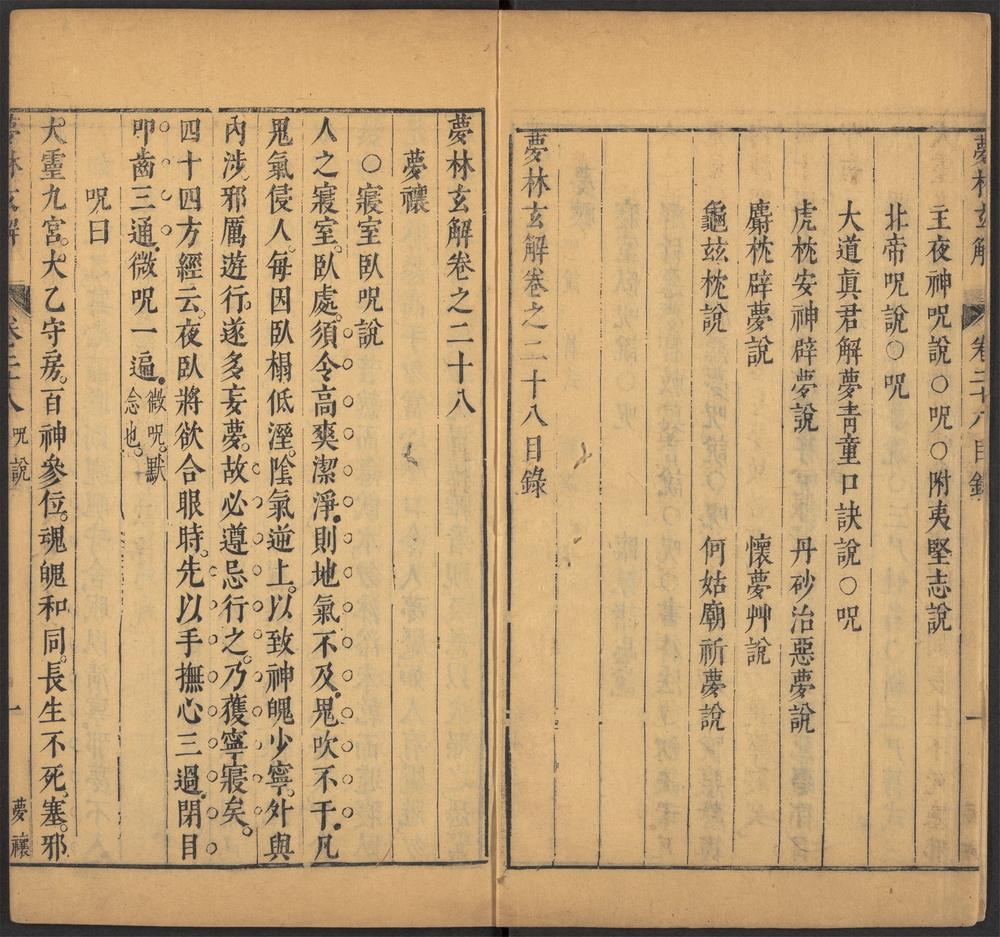 夢林玄解 卷二十八目錄 一
主夜神呪說○呪○附夷堅志說
北帝呪說○呪
大道眞君解夢青童口訣說○呪
虎枕安神辟夢說 丹砂治惡夢說
麝枕辟夢說 懷夢艸說
龜玆枕說 何姑廟祈夢說
夢林玄解卷之二十八目錄
夢林玄解卷之二十八
夢禳
○寢室臥呪說
人之寢室。臥處。須令高爽潔淨。則地氣不及。鬼吹不干。凡
鬼氣侵人。每因臥榻低溼。陰氣逆上。以致神魄少寧。外與
內涉。邪厲遊行。遂多妄夢。故必遵忌行之。乃獲寧寢矣。
四十四方經云。夜臥將欲合眼時。先以手撫心三過。閉目
叩齒三通。微呪一遍。微呪。默念也。
呪曰
大靈九宮。太乙守房。百神參位。魂魄和同。長生不死。塞。邪
夢林玄解 卷二十八 呪說 一 夢禳